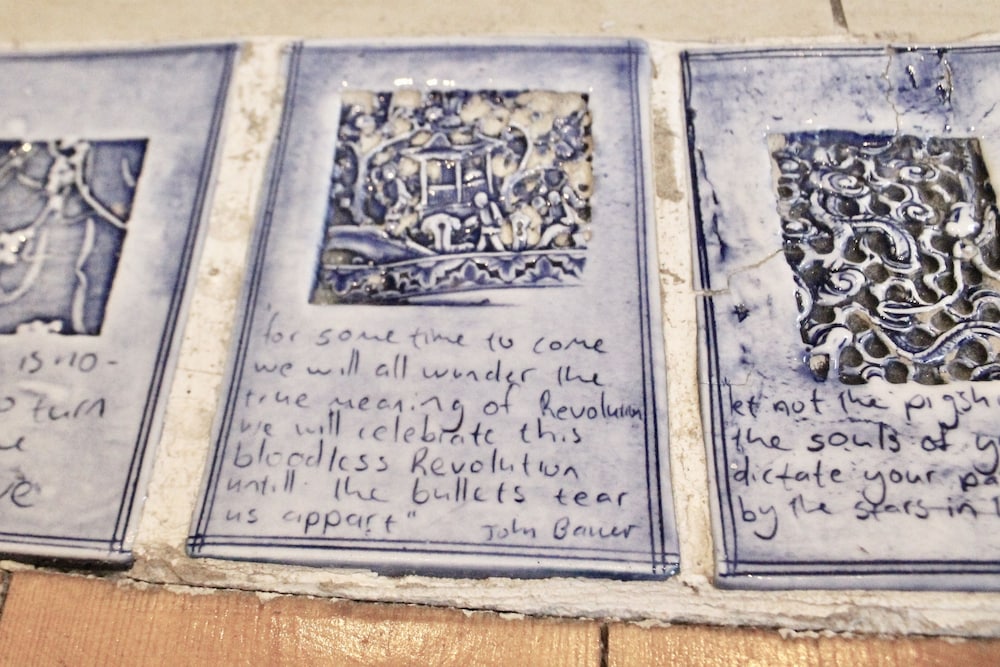 is no-
turn
ve
"for some time to come
we will all wunder the
true meaning of Revolution
we will celebrate this
bloodless Revolution
untill the bullets tear
us appart" John Bauer
let not the
the souls of
dictate your
by the stars in